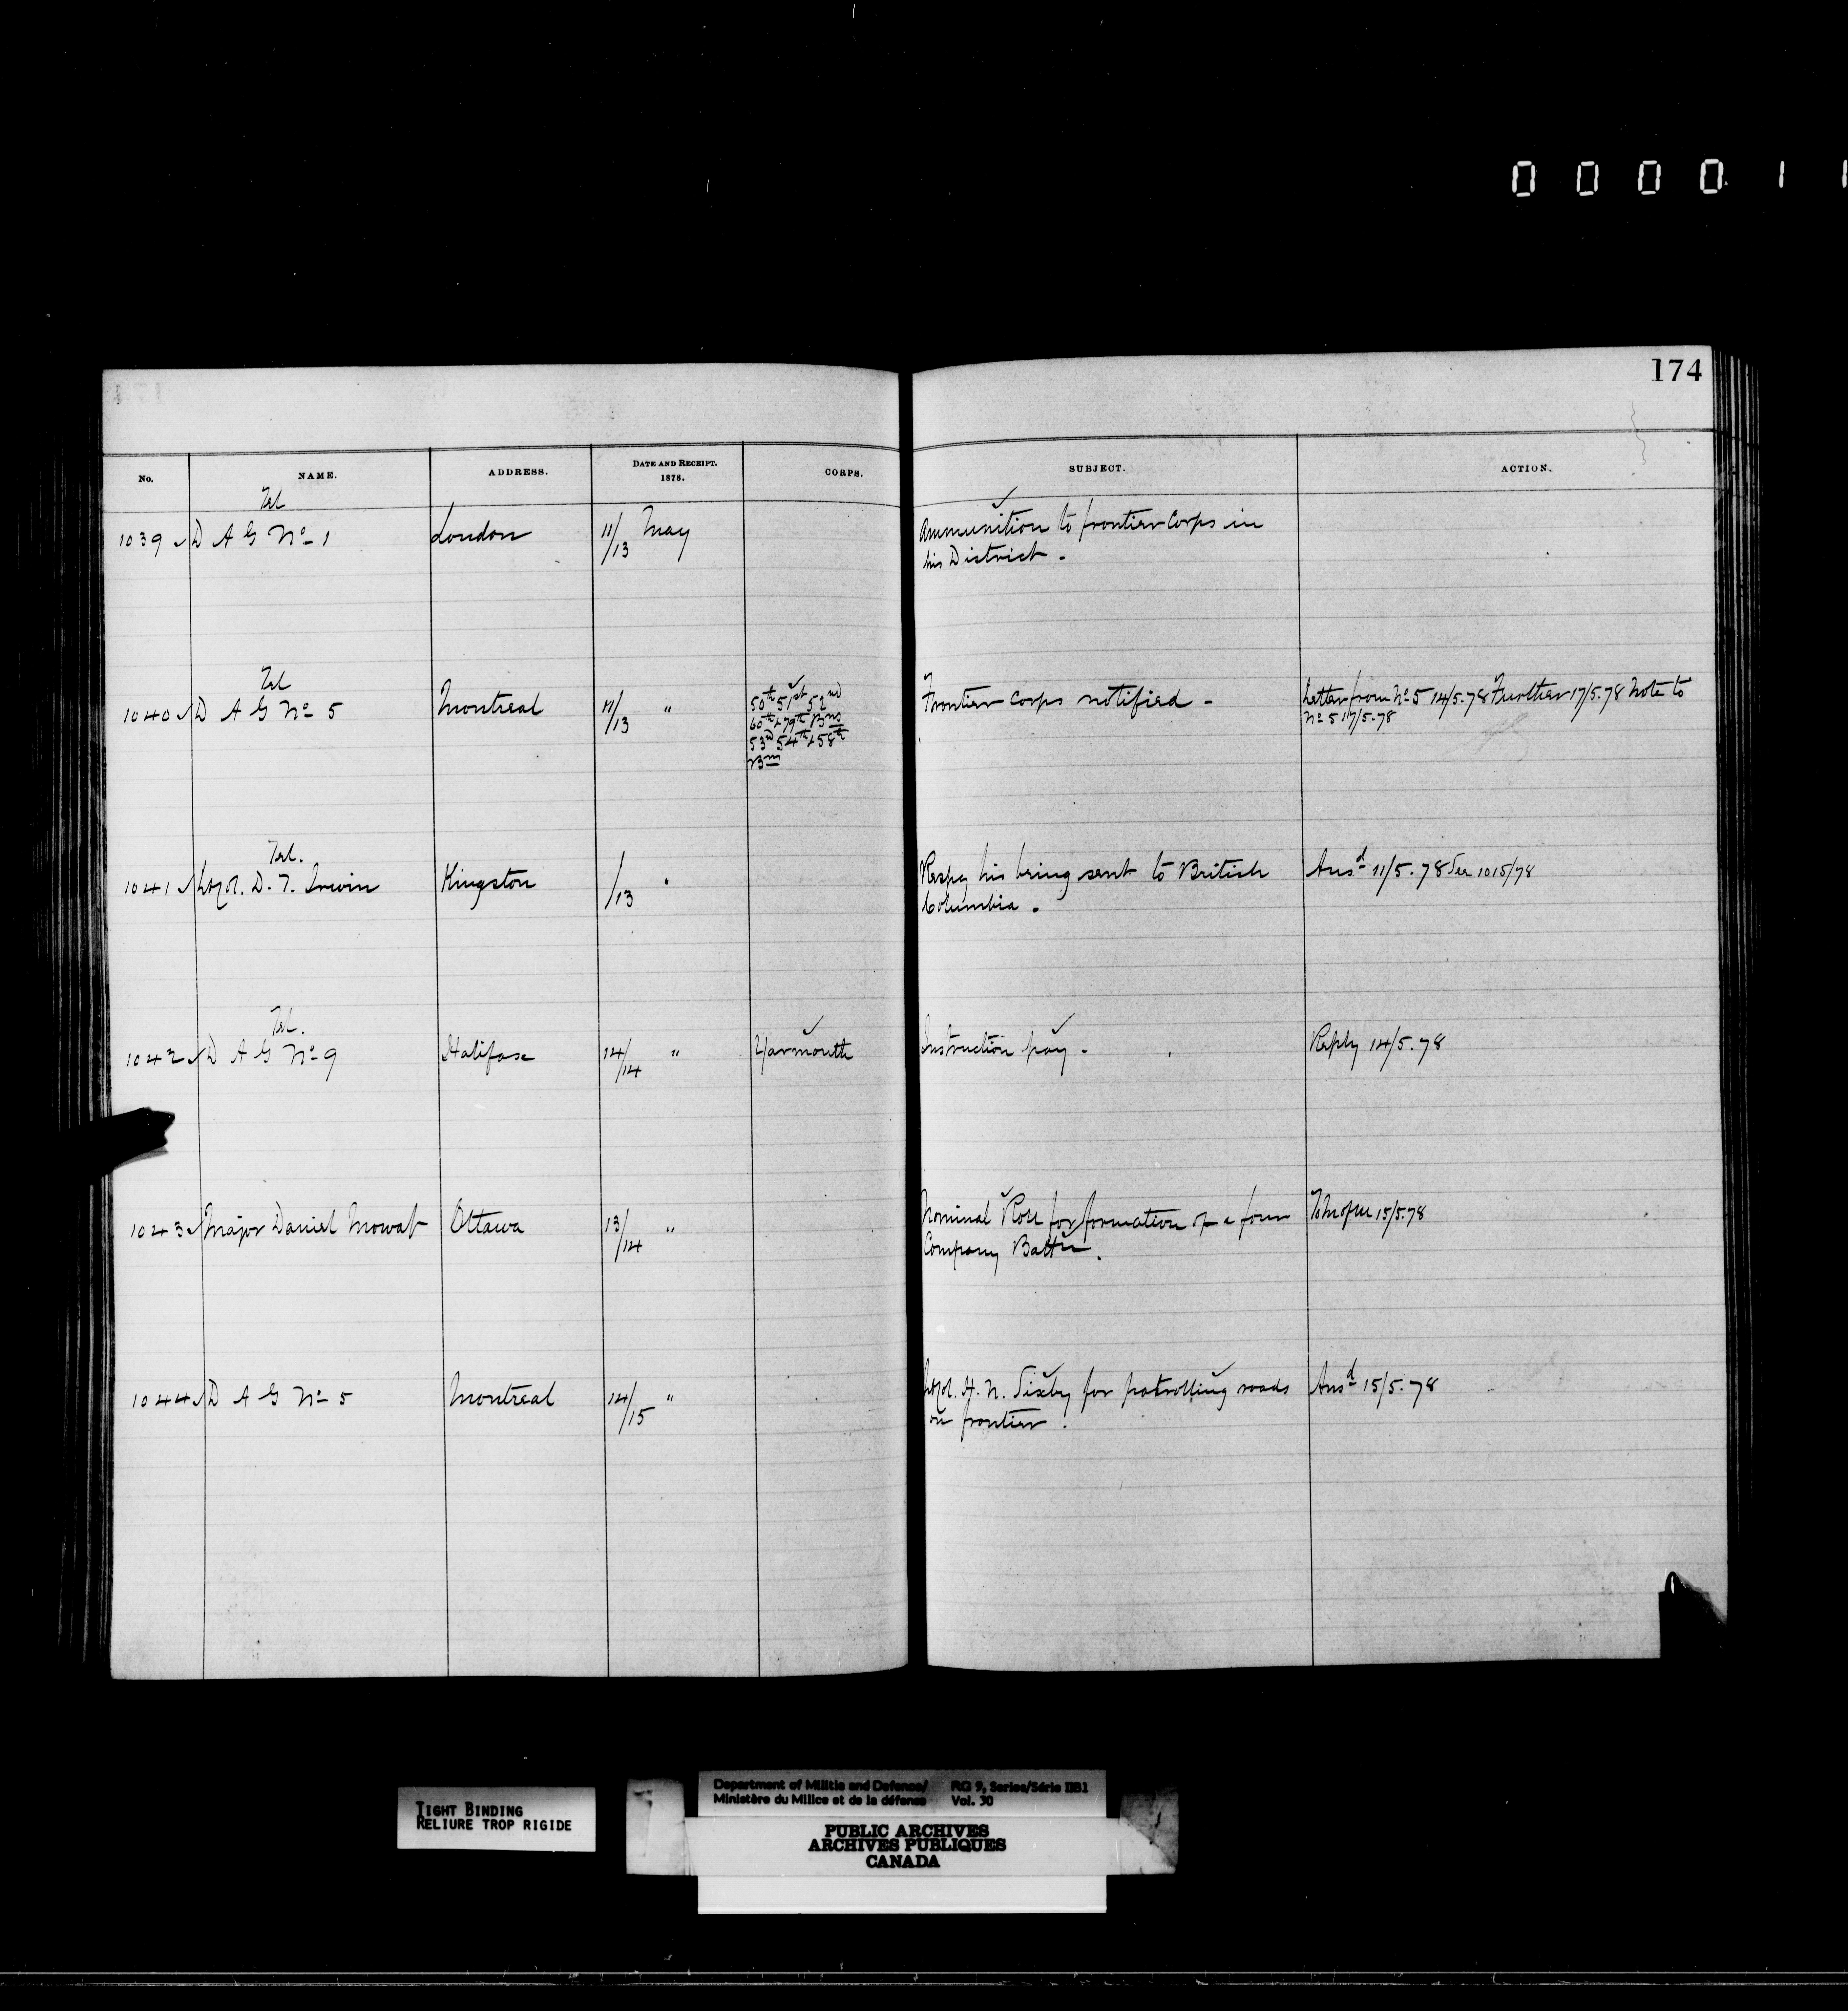 0 0 0 0 1 1
174
No. NAME. ADDRESS. DATE AND RECEIPT. 1878. CORPS. SUBJECT. ACTION.
Tel
1039 D A G No 1 London 11/13 May Ammunition to frontier Corps in
his District.
Tel
1040 D A G No 5 Montreal 11/13 " 50th 51st 52nd Frontier corps notified - Letter from No 5 14/5.78 Further 17/5.78 Note to
60th & 79th Bns No 5 17/5.78
53rd 54th & 58th
Bns
Tel.
1041 Lt Col. D. T. Irwin Kingston /13 " Respg his being sent to British Ansd 11/5.78 See 1015/78
Columbia.
Tel.
1042 D A G No 9 Halifax 14/14 " Yarmouth Instruction pay - Reply 14/5.78
1043 Major Daniel Mowat Ottawa 13/14 " Nominal Roll for formation of a four 15/5.78
Company Battn.
1044 D A G No 5 Montreal 14/15 " Lt Col. H. N. Sixby for patrolling roads Ansd 15/5.78
on frontier.
TIGHT BINDING
RELIURE TROP RIGIDE
Department of Militia and Defence/ RG 9, Series/Série IIB1
Ministère du Milice et de la défense Vol. 30
PUBLIC ARCHIVES
ARCHIVES PUBLIQUES
CANADA